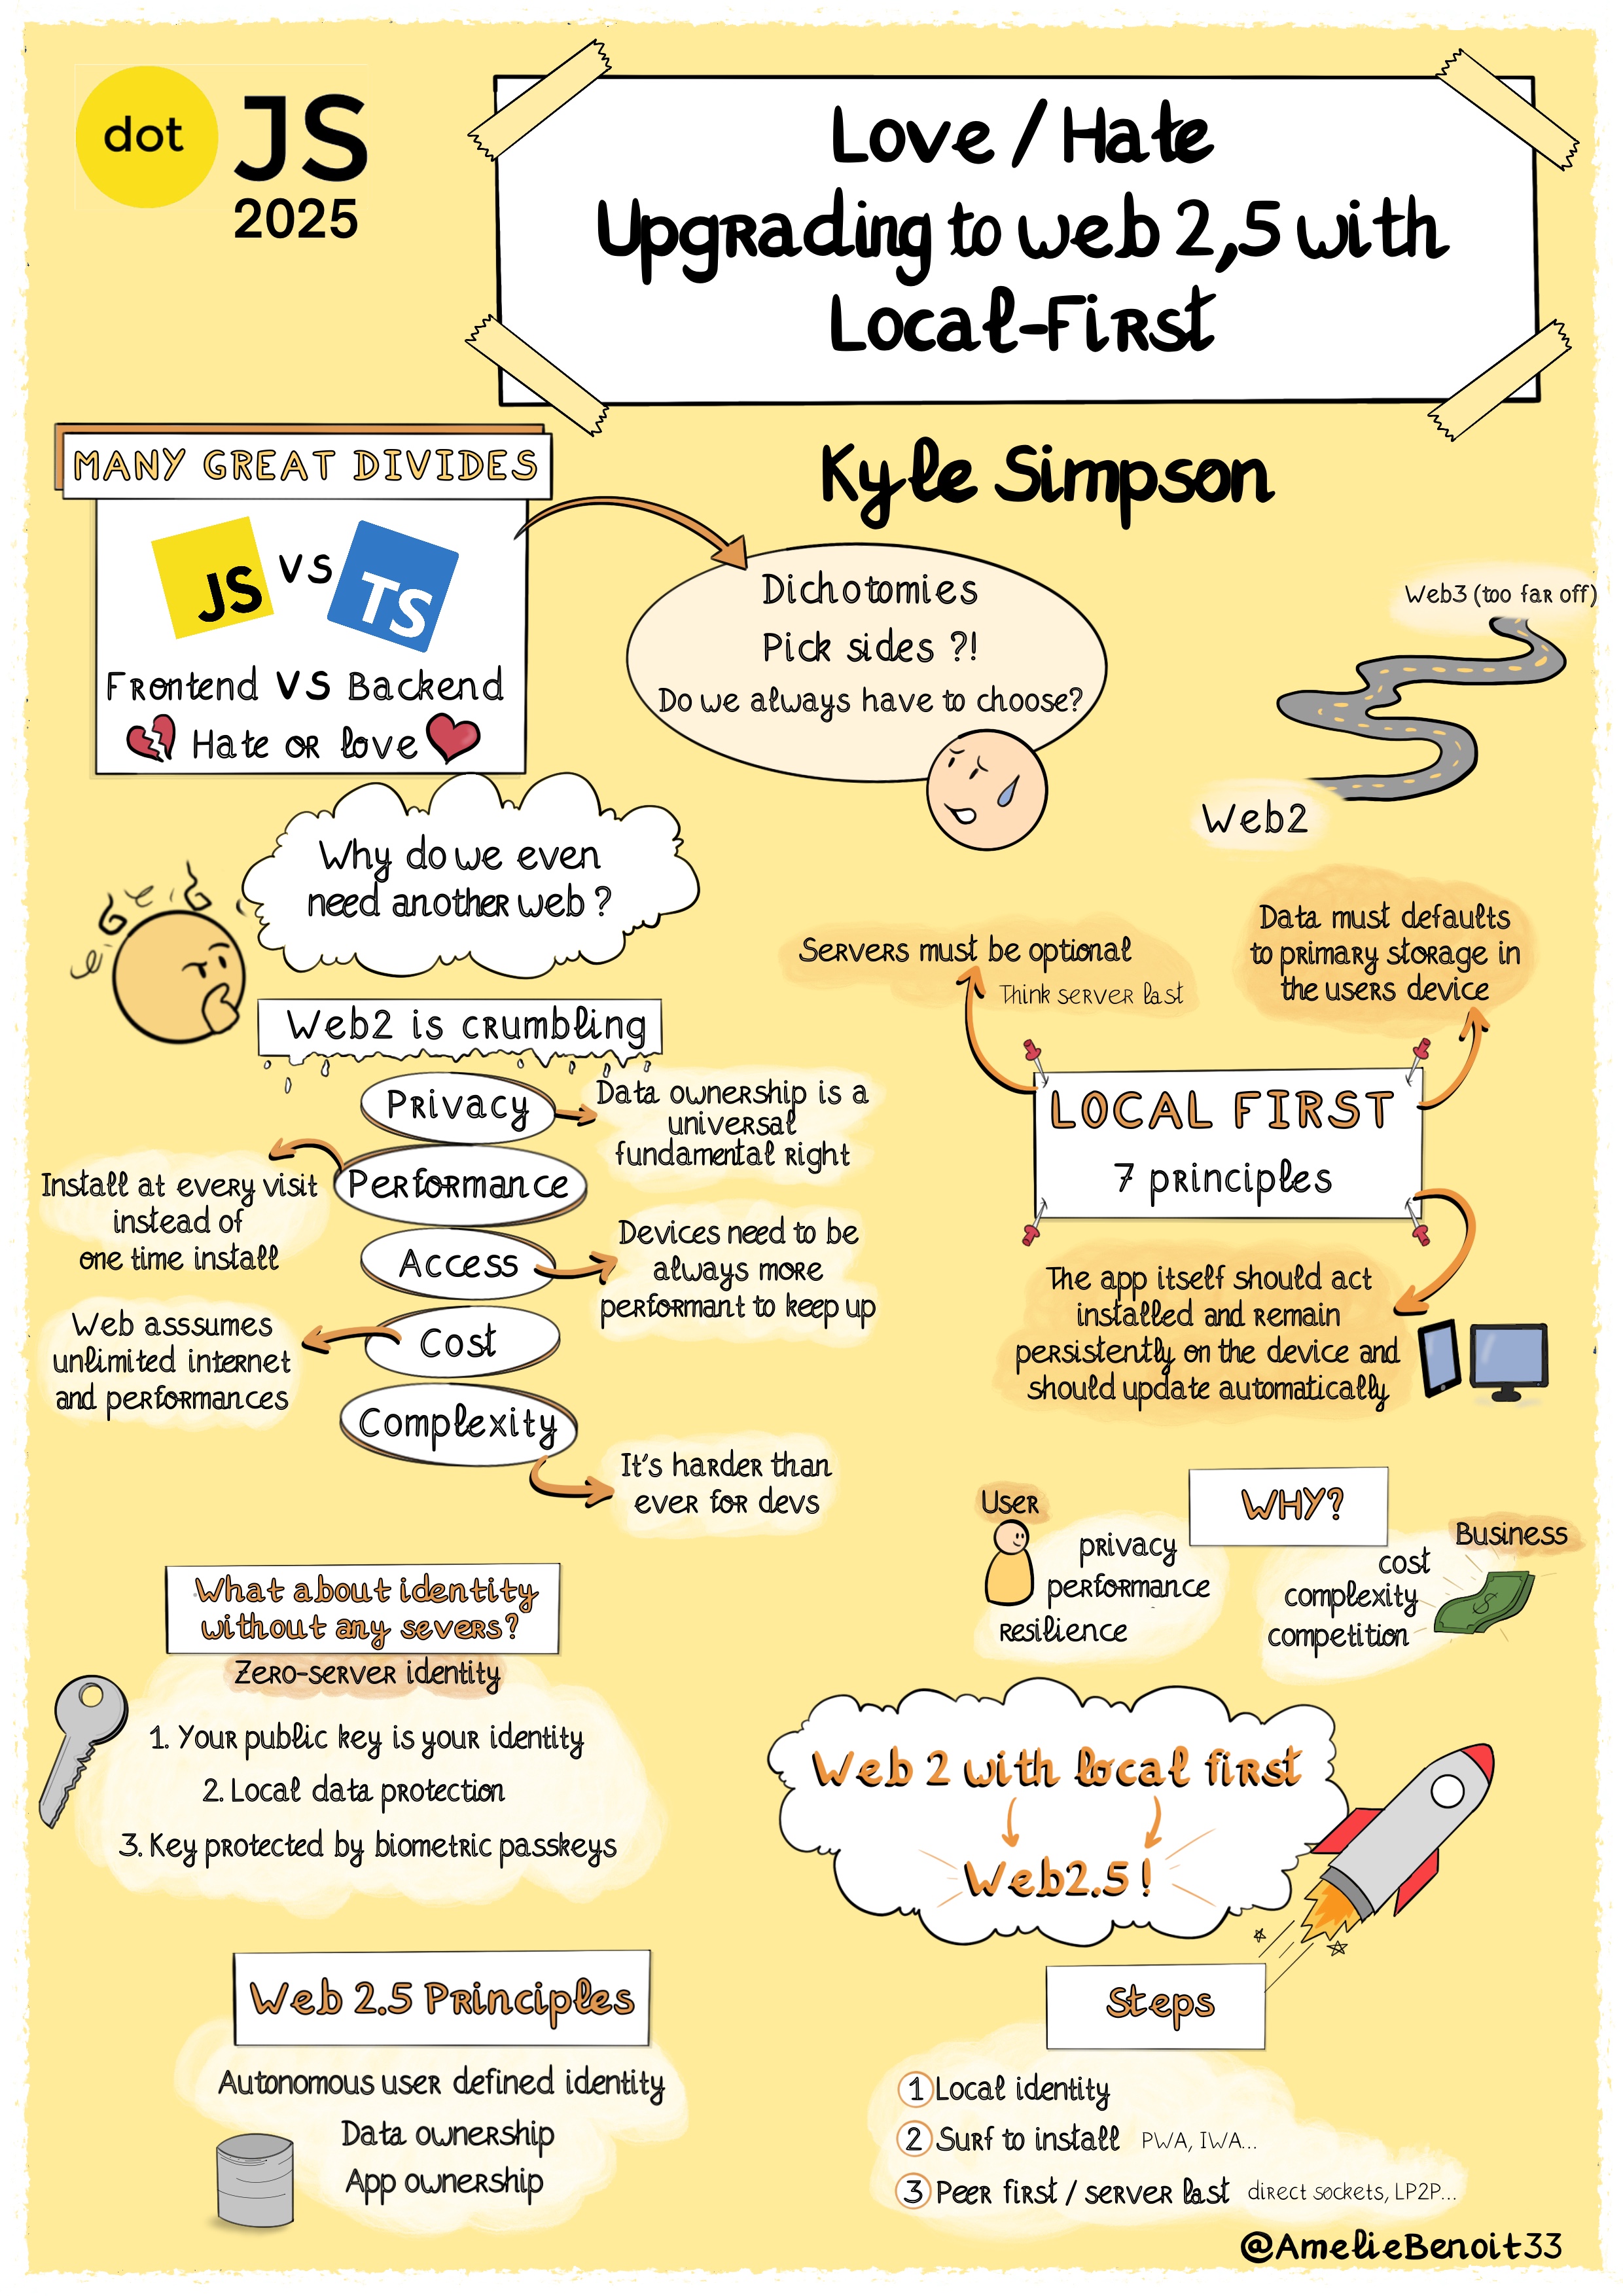 dot JS
2025
Love / Hate
Upgrading to web 2,5 with
Local-First
Kyle Simpson
MANY GREAT DIVIDES
JS VS TS
Frontend VS Backend
Hate or love
Dichotomies
Pick sides ?!
Do we always have to choose?
Web3 (too far off)
Web2
Why do we even
need another web ?
Web2 is crumbling
Privacy
Data ownership is a
universal
fundamental right
Performance
Install at every visit
instead of
one time install
Access
Devices need to be
always more
performant to keep up
Cost
Web asssumes
unlimited internet
and performances
Complexity
It's harder than
ever for devs
Servers must be optional
Think server last
Data must defaults
to primary storage in
the users device
LOCAL FIRST
7 principles
The app itself should act
installed and remain
persistently on the device and
should update automatically
WHY?
User
privacy
performance
resilience
Business
cost
complexity
competition
What about identity
without any severs?
Zero-server identity
1. Your public key is your identity
2. Local data protection
3. Key protected by biometric passkeys
Web 2 with local first
Web2.5 !
Web 2.5 Principles
Autonomous user defined identity
Data ownership
App ownership
Steps
1 Local identity
2 Surf to install PWA, IWA...
3 Peer first / server last direct sockets, LP2P...
@AmelieBenoit33